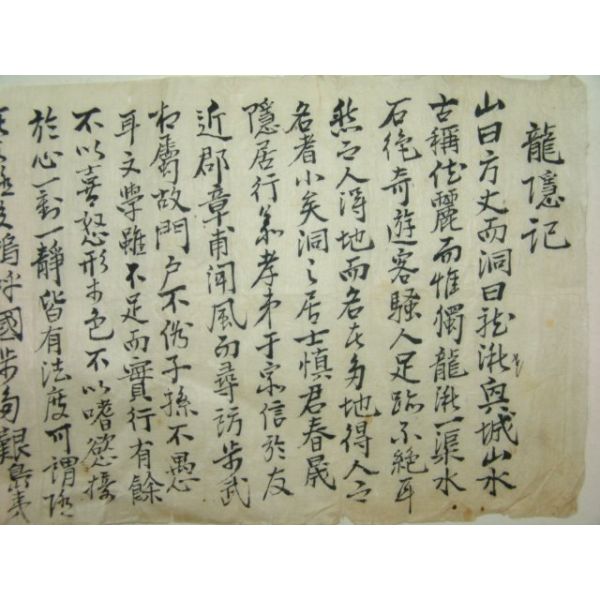 龍隱記
山曰方丈而洞曰龍湫與城山水
古稱佳麗而惟獨龍湫一渠水
石絶奇遊客騷人足跡不絶耳
然而人得地而名者多地得人而
名者小矣洞之居士慎君春晟
隱居行義孝弟于家信於友
近郡章甫聞風而尋訪步武
相屬故門戶不俗子孫不愚
耳文學雖不足而實行有餘
不以喜怒形于色不以嗜慾接
於心一動一靜皆有法度可謂隱
嗚呼國步多艱島夷